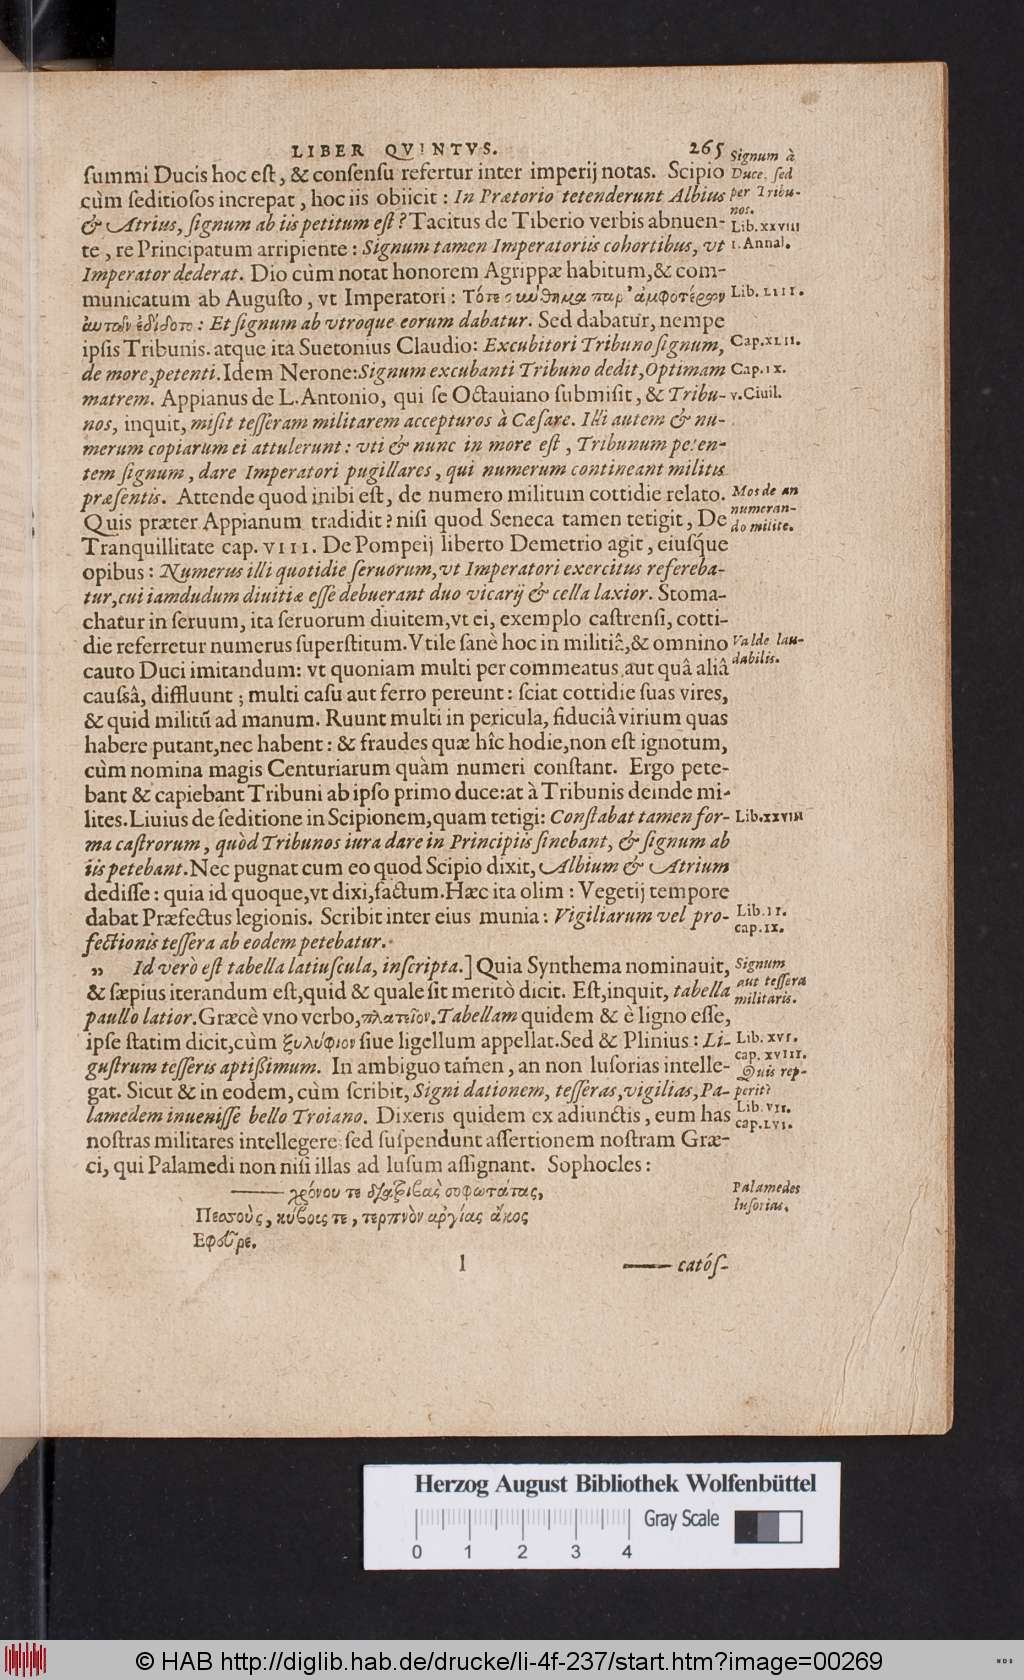 LIBER QVINTVS. 265
summi Ducis hoc est, & consensu refertur inter imperij notas. Scipio
cùm seditiosos increpat, hoc iis obiicit: In Prætorio tetenderunt Albius
& Atrius, signum ab iis petitum est? Tacitus de Tiberio verbis abnuen-
te, re Principatum arripiente: Signum tamen Imperatoriis cohortibus, vt
Imperator dederat. Dio cùm notat honorem Agrippæ habitum, & com-
municatum ab Augusto, vt Imperatori: Τότε συύθημα παρ' ἀμφοτέρων
ἀυτῶν ἐδίδοτο: Et signum ab vtroque eorum dabatur. Sed dabatur, nempe
ipsis Tribunis. atque ita Suetonius Claudio: Excubitori Tribuno signum,
de more, petenti. Idem Nerone: Signum excubanti Tribuno dedit, Optimam
matrem. Appianus de L. Antonio, qui se Octauiano submisit, & Tribu-
nos, inquit, misit tesseram militarem accepturos à Cæsare. Illi autem & nu-
merum copiarum ei attulerunt: vti & nunc in more est, Tribunum peten-
tem signum, dare Imperatori pugillares, qui numerum contineant militis
præsentis. Attende quod inibi est, de numero militum cottidie relato.
Quis præter Appianum tradidit? nisi quod Seneca tamen tetigit, De
Tranquillitate cap. VIII. De Pompeij liberto Demetrio agit, eiusq́ue
opibus: Numerus illi quotidie seruorum, vt Imperatori exercitus refereba-
tur, cui iamdudum diuitiæ esse debuerant duo vicarij & cella laxior. Stoma-
chatur in seruum, ita seruorum diuitem, vt ei, exemplo castrensi, cotti-
die referretur numerus superstitum. Vtile sanè hoc in militiâ, & omnino
cauto Duci imitandum: vt quoniam multi per commeatus aut quâ aliâ
caussâ, diffluunt; multi casu aut ferro pereunt: sciat cottidie suas vires,
& quid militũ ad manum. Ruunt multi in pericula, fiduciâ virium quas
habere putant, nec habent: & fraudes quæ hîc hodie, non est ignotum,
cùm nomina magis Centuriarum quàm numeri constant. Ergo pete-
bant & capiebant Tribuni ab ipso primo duce: at à Tribunis deinde mi-
lites. Liuius de seditione in Scipionem, quam tetigi: Constabat tamen for-
ma castrorum, quòd Tribunos iura dare in Principiis sinebant, & signum ab
iis petebant. Nec pugnat cum eo quod Scipio dixit, Albium & Atrium
dedisse: quia id quoque, vt dixi, factum. Hæc ita olim: Vegetij tempore
dabat Præfectus legionis. Scribit inter eius munia: Vigiliarum vel pro-
fectionis tessera ab eodem petebatur.
„ Id verò est tabella latiuscula, inscripta.] Quia Synthema nominauit,
& sæpius iterandum est, quid & quale sit meritò dicit. Est, inquit, tabella
paullo latior. Græcè vno verbo, πλατεῖον. Tabellam quidem & è ligno esse,
ipse statim dicit, cùm ξυλύφιον siue ligellum appellat. Sed & Plinius: Li-
gustrum tesseris aptißimum. In ambiguo tamen, an non lusorias intelle-
gat. Sicut & in eodem, cùm scribit, Signi dationem, tesseras, vigilias, Pa-
lamedem inuenisse bello Troiano. Dixeris quidem ex adiunctis, eum has
nostras militares intellegere: sed suspendunt assertionem nostram Græ-
ci, qui Palamedi non nisi illas ad lusum assignant. Sophocles:
—— χρόνου τε διατριβὰς σοφωτάτας,
Πεσσοὺς, κύβοις τε, τερπνὸν ἀργίας ἄκος
Εφεῦρε.
l —— catós-
Signum à
Duce, sed
per Tribu-
nos.
Lib. XXVIII
I. Annal.
Lib. LIII.
Cap. XLII.
Cap. IX.
V. Ciuil.
Mos de an
numeran-
do milite.
Valde lau-
dabilis.
Lib. XXVIII
Lib. II.
cap. IX.
Signum
aut tessera
militaris.
Lib. XVI.
cap. XVIII.
Quis rep-
perit?
Lib. VII.
cap. LVI.
Palamedes
lusorias.
Herzog August Bibliothek Wolfenbüttel
Gray Scale
0 1 2 3 4
© HAB http://diglib.hab.de/drucke/li-4f-237/start.htm?image=00269